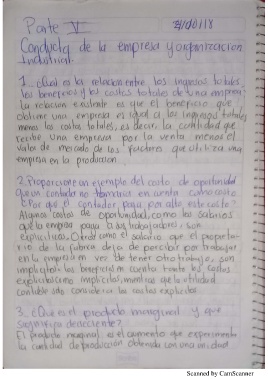 Parte V
Conducta de la empresa y organización
Industrial.
1. ¿Cuál es la relación entre los ingresos totales,
los beneficios y los costos totales de una empresa?
La relación existente es que el beneficio que
obtiene una empresa es igual a los ingresos totales
menos los costos totales, es decir, la cantidad que
recibe una empresa por la venta menos el
valor de mercado de los factores que utiliza una
empresa en la producción.
2. Proporcione un ejemplo del costo de oportunidad
que un contador no tomaría en cuenta como costo
¿Por qué el contador pasa por alto este costo?
Algunos costos de oportunidad, como los salarios
que la empresa paga a sus trabajadores, son
explícitos. Otros como el salario que el propieta-
rio de la fabrica deja de percibir por trabajar
en la empresa en vez de tener otro trabajo, son
implícitos. los beneficios en cuenta tanto los costos
explícitos como implícitos, mientras que la utilidad
contable sólo considera los costos explícitos.
3. ¿Qué es el producto marginal y que
significa decreciente?
El producto marginal es el aumento que experimenta
la cantidad de producción obtenida con una unidad
Scanned by CamScanner